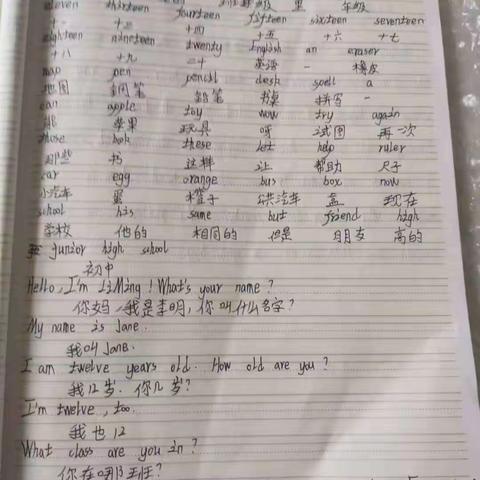 eleven thirteen fourteen fifteen sixteen seventeen
十一 十三 十四 十五 十六 十七
eighteen nineteen twenty English an eraser
十八 十九 二十 英语 一 橡皮
map pen pencil desk spell a
地图 钢笔 铅笔 书桌 拼写 一
can apple toy wow try again
能 苹果 玩具 呀 试图 再一次
those book these let help ruler
那些 书 这样 让 帮助 尺子
car egg orange bus box now
小汽车 蛋 橙子 公共汽车 盒 现在
school his same but friend high
学校 他的 相同的 但是 朋友 高的
junior high school
初中
Hello, I'm LiMing! What's your name?
你妈,我是李明,你叫什么名字?
My name is Jane.
我叫Jane.
I am twelve years old. How old are you?
我12岁.你几岁?
I'm twelve, too.
我也12
What class are you in?
你在哪班?